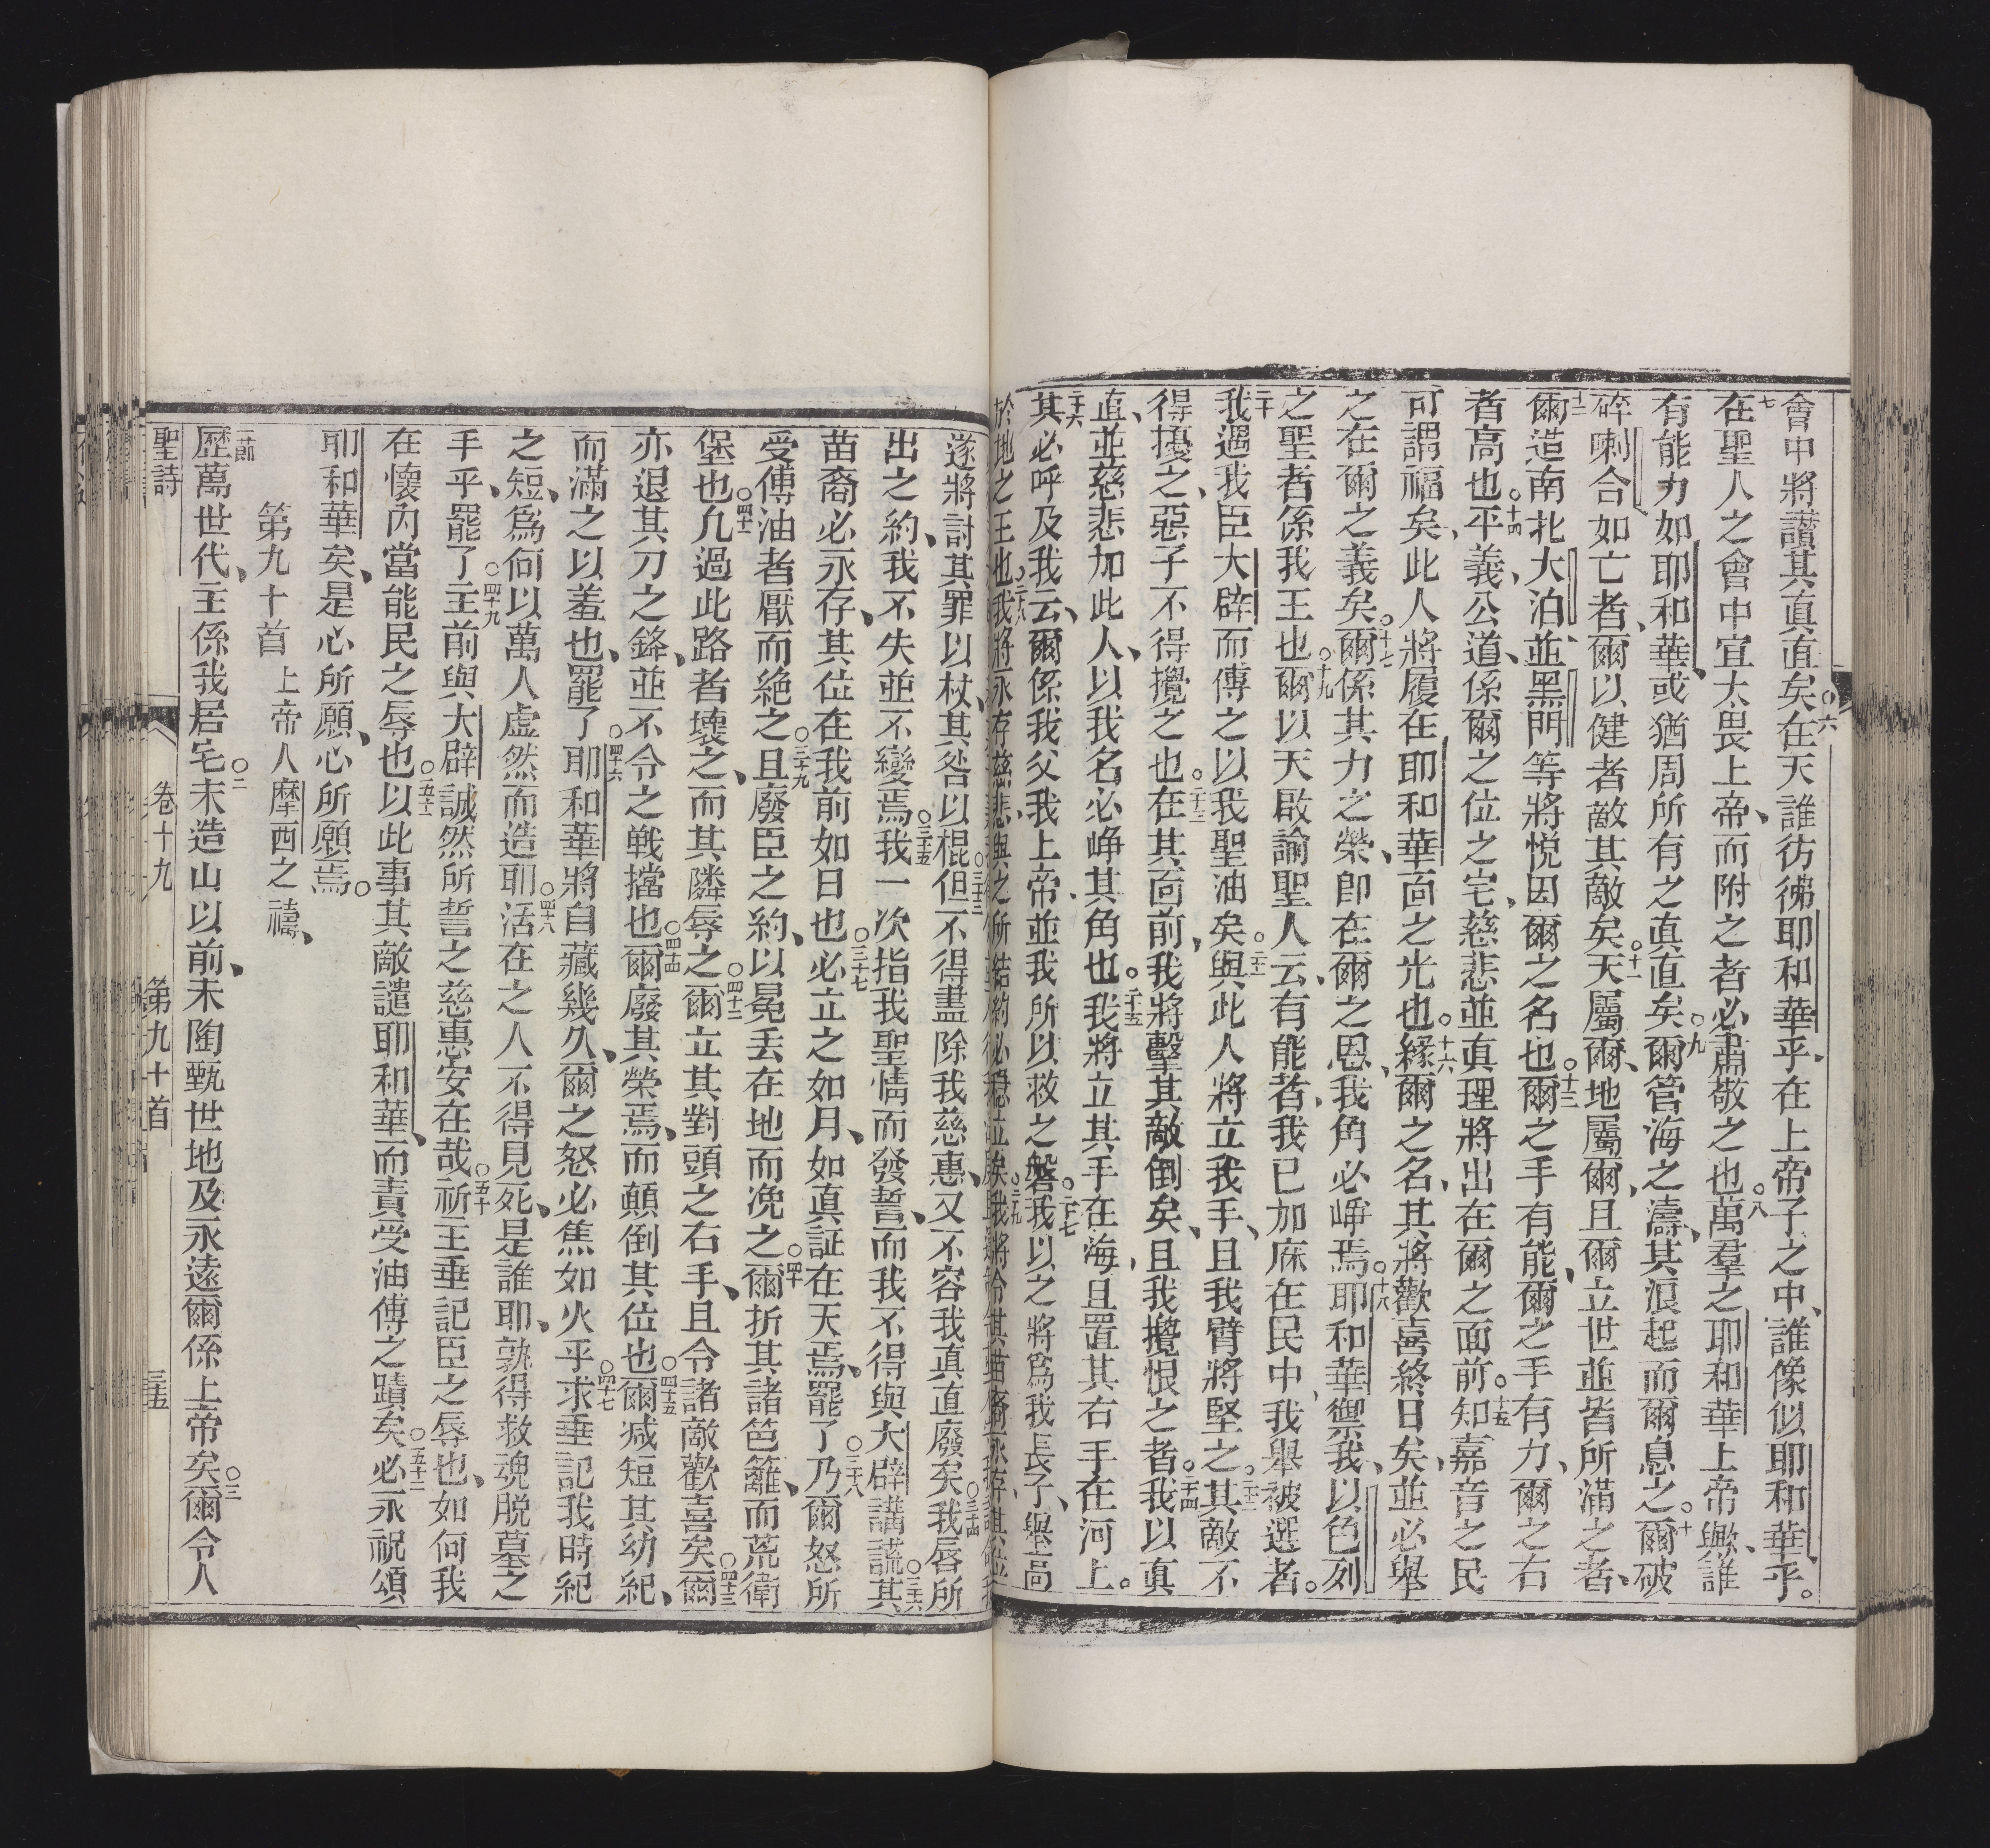 會中將讚其真直矣○六在天誰彷彿耶和華乎、在上帝子之中、誰像似耶和華乎。
七在聖人之會中宜太畏上帝、而附之者必肅敬之也○八萬羣之耶和華上帝歟、誰
有能力如耶和華、或猶周所有之真直矣○九爾管海之濤、其浪起而爾息之○十爾破
碎喇合如亡者、爾以健者敵其敵矣○十一天屬爾、地屬爾、且爾立世並皆所滿之者、
十二爾造南北大泊並黑門等將悅因爾之名也○十三爾之手有能、爾之手有力、爾之右
者高也○十四平義、公道、係爾之位之宅、慈悲並真理將出在爾之面前○十五知嘉音之民
可謂福矣、此人將履在耶和華面之光也○十六緣爾之名、其將歡喜終日矣、並必舉
之在爾之義矣○十七爾係其力之榮、即在爾之恩、我角必崢焉○十八耶和華禦我、以色列
之聖者係我王也○十九爾以天啟諭聖人云、有能者、我已加庥在民中、我舉被選者。
二十我遇我臣大辟而傅之以我聖油矣○二十一與此人將立我手、且我臂將堅之○二十二其敵不
得擾之、惡子不得攪之也○二十三在其面前、我將擊其敵倒矣、且我攪恨之者○二十四我以真
直、並慈悲加此人、以我名必崢其角也○二十五我將立其手在海、且置其右手在河上。
二十六其必呼及我云、爾係我父我上帝、並我所以救之磐○二十七我以之將為我長子、舉高
於地之王也○二十八我將永存慈悲與之所結約必穩並矣○二十九我將令其苗裔永存、其位
遂將討其罪以杖、其咎以棍○三十三但不得盡除我慈惠、又不容我真直廢矣○三十四我唇所
出之約、我不失並不變焉○三十五我一次指我聖情而發誓、而我不得與大辟講謊○三十六其
苗裔必永存、其位在我前如日也○三十七必立之如月、如真証在天焉、罷了○三十八乃爾怒所
受傅油者厭而絕之○三十九且廢臣之約、以冕丟在地而凂之○四十爾折其諸笆籬、而荒衛
堡也○四十一凢過此路者壞之、而其隣辱之○四十二爾立其對頭之右手、且令諸敵歡喜矣○四十三爾
亦退其刀之鋒、並不令之戰擋也○四十四爾廢其榮焉、而顛倒其位也○四十五爾減短其幼紀、
而滿之以羞也、罷了○四十六耶和華將自藏幾久、爾之怒必焦如火乎○四十七求垂記我時紀
之短、為何以萬人虛然而造耶○四十八活在之人不得見死、是誰耶、孰得救魂脫墓之
手乎、罷了○四十九主前與大辟誠然所誓之慈惠安在哉○五十祈主垂記臣之辱也、如何我
在懷內當能民之辱也○五十一以此事其敵譴耶和華、而責受油傅之蹟矣○五十二必永祝頌
耶和華矣、是心所願、心所願焉○
第九十首　上帝人摩西之禱、
一節歷萬世代、主係我居宅○二未造山以前、未陶甄世地及永遠爾係上帝矣○三爾令人
聖詩　卷十九　第九十首　三十五